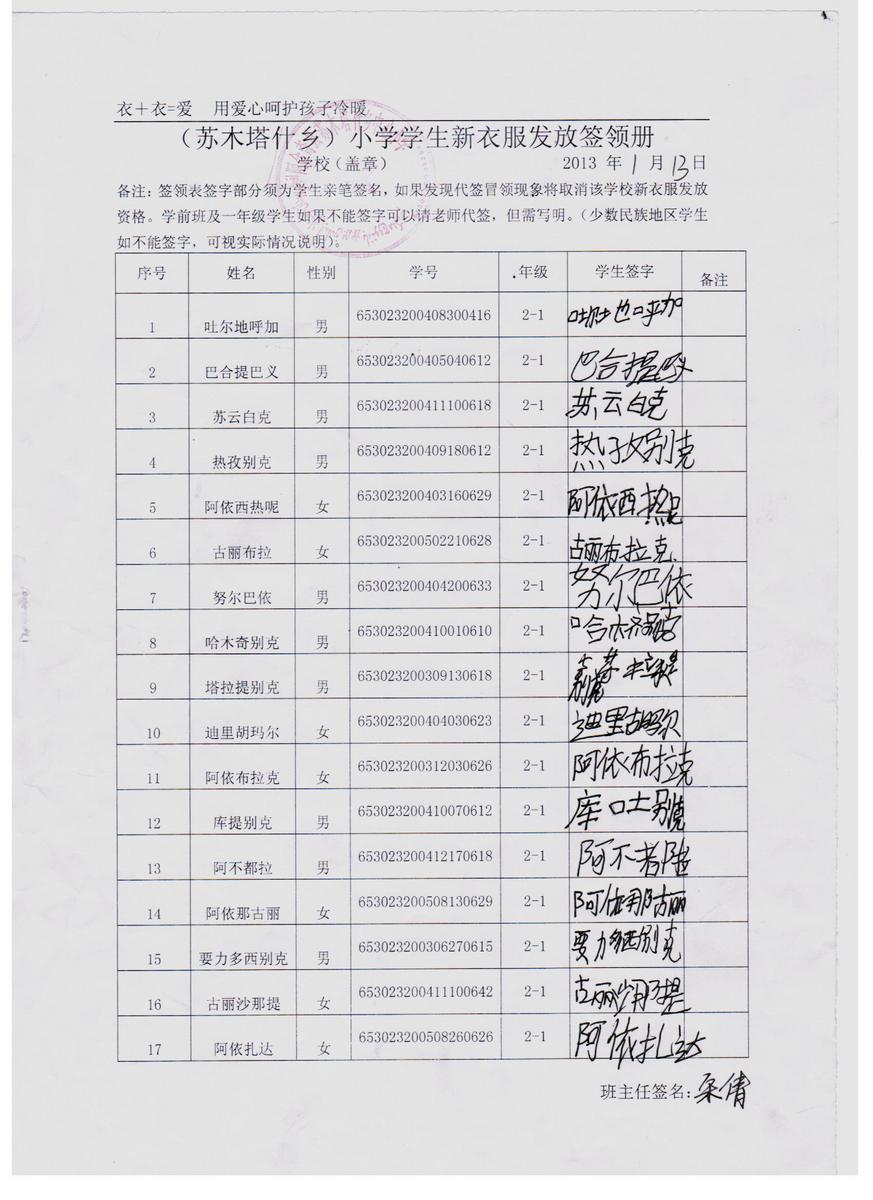 衣＋衣=爱 用爱心呵护孩子冷暖
（苏木塔什乡）小学学生新衣服发放签领册
学校（盖章） 2013 年 1 月 13 日
备注：签领表签字部分须为学生亲笔签名，如果发现代签冒领现象将取消该学校新衣服发放
资格。学前班及一年级学生如果不能签字可以请老师代签，但需写明。（少数民族地区学生
如不能签字，可视实际情况说明）。
序号 姓名 性别 学号 年级 学生签字 备注
1 吐尔地呼加 男 653023200408300416 2-1
2 巴合提巴义 男 653023200405040612 2-1 巴合提巴义
3 苏云白克 男 653023200411100618 2-1 苏云白克
4 热孜别克 男 653023200409180612 2-1 热孜别克
5 阿依西热呢 女 653023200403160629 2-1 阿依西热呢
6 古丽布拉 女 653023200502210628 2-1 古丽布拉克
7 努尔巴依 男 653023200404200633 2-1 努尔巴依
8 哈木奇别克 男 653023200410010610 2-1
9 塔拉提别克 男 653023200309130618 2-1
10 迪里胡玛尔 女 653023200404030623 2-1 迪里胡玛尔
11 阿依布拉克 女 653023200312030626 2-1 阿依布拉克
12 库提别克 男 653023200410070612 2-1 库吐别克
13 阿不都拉 男 653023200412170618 2-1
14 阿依那古丽 女 653023200508130629 2-1 阿依那古丽
15 要力多西别克 男 653023200306270615 2-1 要力多西别克
16 古丽沙那提 女 653023200411100642 2-1 古丽沙那提
17 阿依扎达 女 653023200508260626 2-1 阿依扎达
班主任签名：